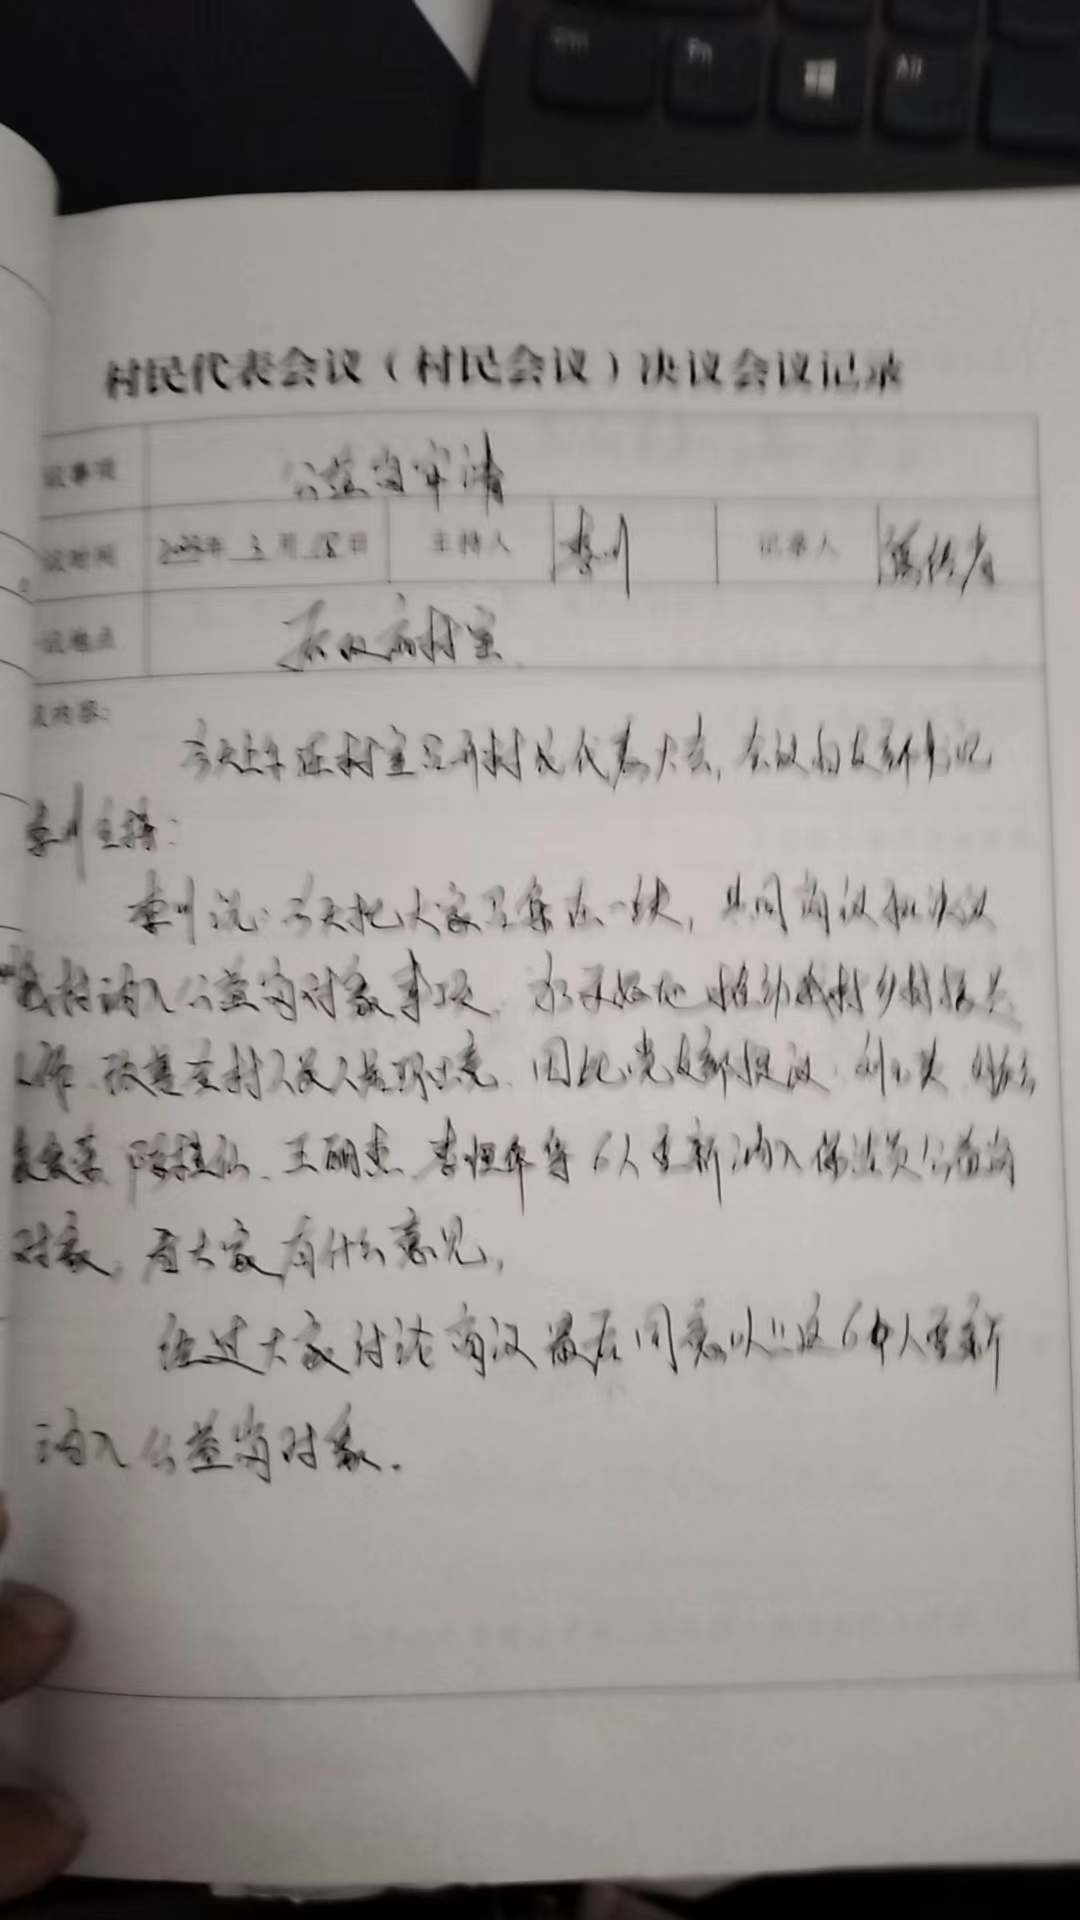 Fn
Alt
村民代表会议（村民会议）决议会议记录
议事项 公益岗申请
议时间 年 3 月 18 日 主持人 李川 记录人
议地点 村室
议内容：
今天上午在村室召开村民代表大会，会议由支部书记
李川主持：
李川说：今天把大家召集在一块，共同商议和决议
我村纳入公益岗对象事项，为更好地推动我村乡村振兴
工作，改善支村人民人居环境，因此党支部提议，
陈桂仙、王丽杰、李恒军等6人重新纳入保洁员公益岗
对象，看大家有什么意见，
经过大家讨论商议最后同意以上这6个人重新
纳入公益岗对象.